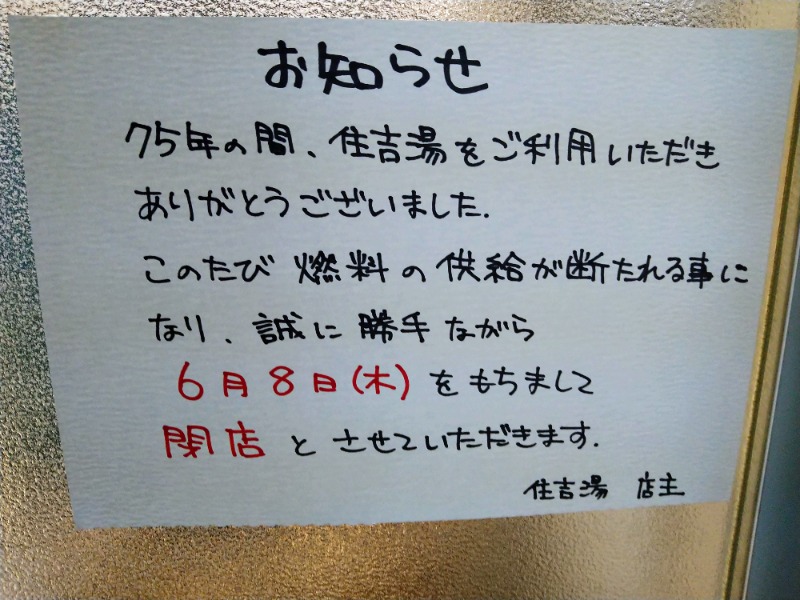 お知らせ
75年の間、住吉湯をご利用いただき
ありがとうございました.
このたび 燃料の供給が断たれる事に
なり、誠に勝手ながら
6月8日(木)をもちまして
閉店とさせていただきます.
住吉湯 店主